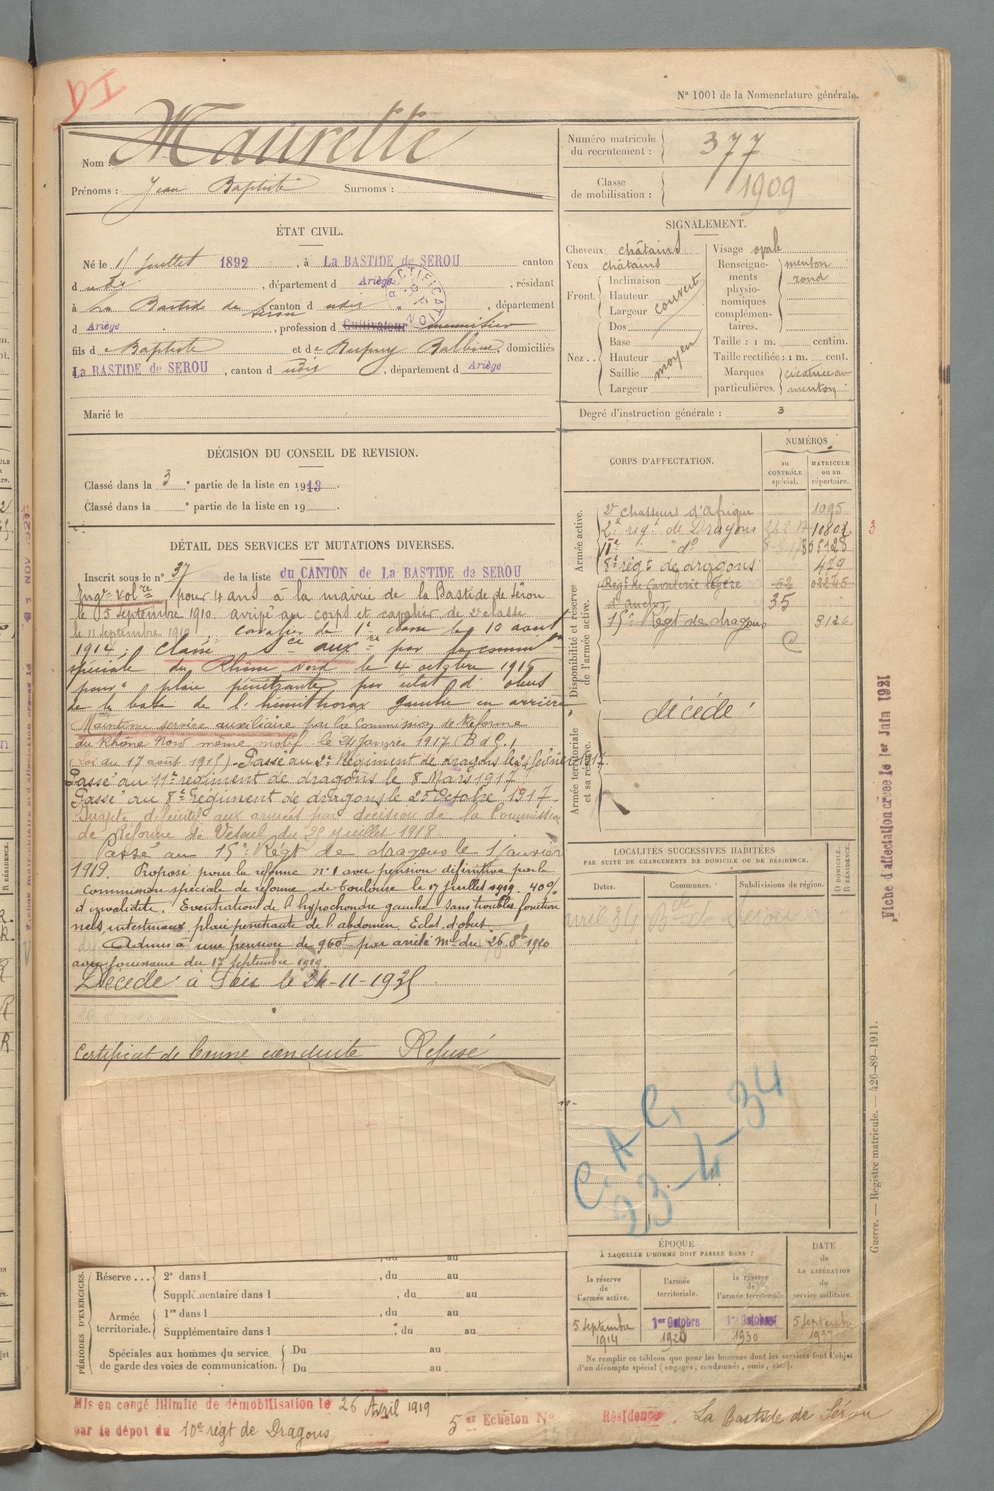 N° 1001 de la Nomenclature générale.
Nom : Maurette
Prénoms : Jean Baptiste Surnoms :
Numéro matricule du recrutement : 377
Classe de mobilisation : 1909
ÉTAT CIVIL.
Né le 15 juillet 1892, à La BASTIDE de SEROU canton
d udit, département d Ariège, résidant
à La Bastide de Serou canton d udit, département
d Ariège, profession d Cultivateur
fils d e Baptiste et d e Balbine, domiciliés
La BASTIDE de SEROU, canton d udit, département d Ariège
Marié le
RECTIFICATION
SIGNALEMENT.
Cheveux châtains
Yeux châtains
Front Inclinaison
Hauteur
Largeur
couvert
Nez Dos
Base
Hauteur
Saillie
Largeur
moyen
Visage oval
Renseignements physionomiques complémentaires. menton rond
Taille : 1 m. centim.
Taille rectifiée : 1 m. cent.
Marques particulières. cicatrice au menton
Degré d'instruction générale : 3
DÉCISION DU CONSEIL DE REVISION.
Classé dans la 3e partie de la liste en 1913.
Classé dans la e partie de la liste en 19 .
DÉTAIL DES SERVICES ET MUTATIONS DIVERSES.
Inscrit sous le n° 37 de la liste du CANTON de La BASTIDE de SEROU
Engt volre pour 4 ans à la mairie de la Bastide de Sérou
le 5 septembre 1910 arrivé au corps et cavalier de 2e classe
le 11 septembre 1910, cavalier de 1re classe le 10 août
1914, Classé sce auxre par la common
spéciale du Rhône Nord le 4 octobre 1916
pour plaie pénétrante par éclat d'obus
de la base de l'hémithorax gauche en arrière
Maintenu service auxiliaire par la Commission de Réforme
du Rhône Nord même motif le 21 janvier 1917
(Loi du 17 août 1915) - Passé au 2e Régiment de dragons le 24 février 1917.
Passé au 11e régiment de dragons le 8 Mars 1917
Passé au 8e Régiment de dragons le 25 Octobre 1917
Inapte définitif aux armées par décision de la Commission
de Réforme de Vesoul du 29 juillet 1918
Passé au 15e Régt de dragons le 1 janvier
1919. Proposé pour la réforme n° 1 avec pension définitive par la
commission spéciale de réforme de Toulouse le 17 juillet 1919. 40%
d'invalidité. Eventration de l'hypochondre gauche sans troubles fonctionnels
intestinaux, plaie pénétrante de l'abdomen. Eclat d'obus.
Admis à une pension de 960f par arrêté Mel du 26. 8bre 1920
avec jouissance du 17 septembre 1919
Décédé à Foix le 24-11-1935
Certificat de bonne conduite Refusé
CORPS D'AFFECTATION.
NUMÉROS
AU CONTRÔLE spécial.
MATRICULE ou au répertoire.
Armée active.
2e chasseurs d'Afrique 1095
2e régt de Dragons 10802 3
11e do
8e régt de dragons 479
Disponibilité et réserve de l'armée active.
Régt de Cavalerie légère 62
d'Auch 35
15e Régt de dragons 3126
Armée territoriale et sa réserve.
décédé
LOCALITÉS SUCCESSIVES HABITÉES
PAR SUITE DE CHANGEMENTS DE DOMICILE OU DE RÉSIDENCE.
Dates. Communes. Subdivisions de région. D DOMICILE. R RÉSIDENCE.
avril 34
C. A. C.
23-4-34
PÉRIODES D'EXERCICES.
Réserve... 2e dans l , du au
Supplémentaire dans l , du au
Armée territoriale. 1re dans l , du au
Supplémentaire dans l , du au
Spéciales aux hommes du service de garde des voies de communication.
Du au
Du au
ÉPOQUE
À LAQUELLE L'HOMME DOIT PASSER DANS :
la réserve de l'armée active.
l'armée territoriale.
la réserve de l'armée territoriale.
DATE de LA LIBÉRATION du service militaire.
5 septembre 1914
1er Octobre 1920
1er Octobre 1930
5 septembre
Ne remplir ce tableau que pour les hommes dont les services font l'objet
d'un décompte spécial (engagés, condamnés, omis, etc.).
Mis en congé illimité de démobilisation le 26 Avril 1919
par le dépôt du 10e régt de Dragons
5 er Echelon N°
Résidence. La Bastide de Sérou
Fiche d'affectation créée le 1er Juin 1921
Guerre. — Registre matricule. — 426-89-1911.